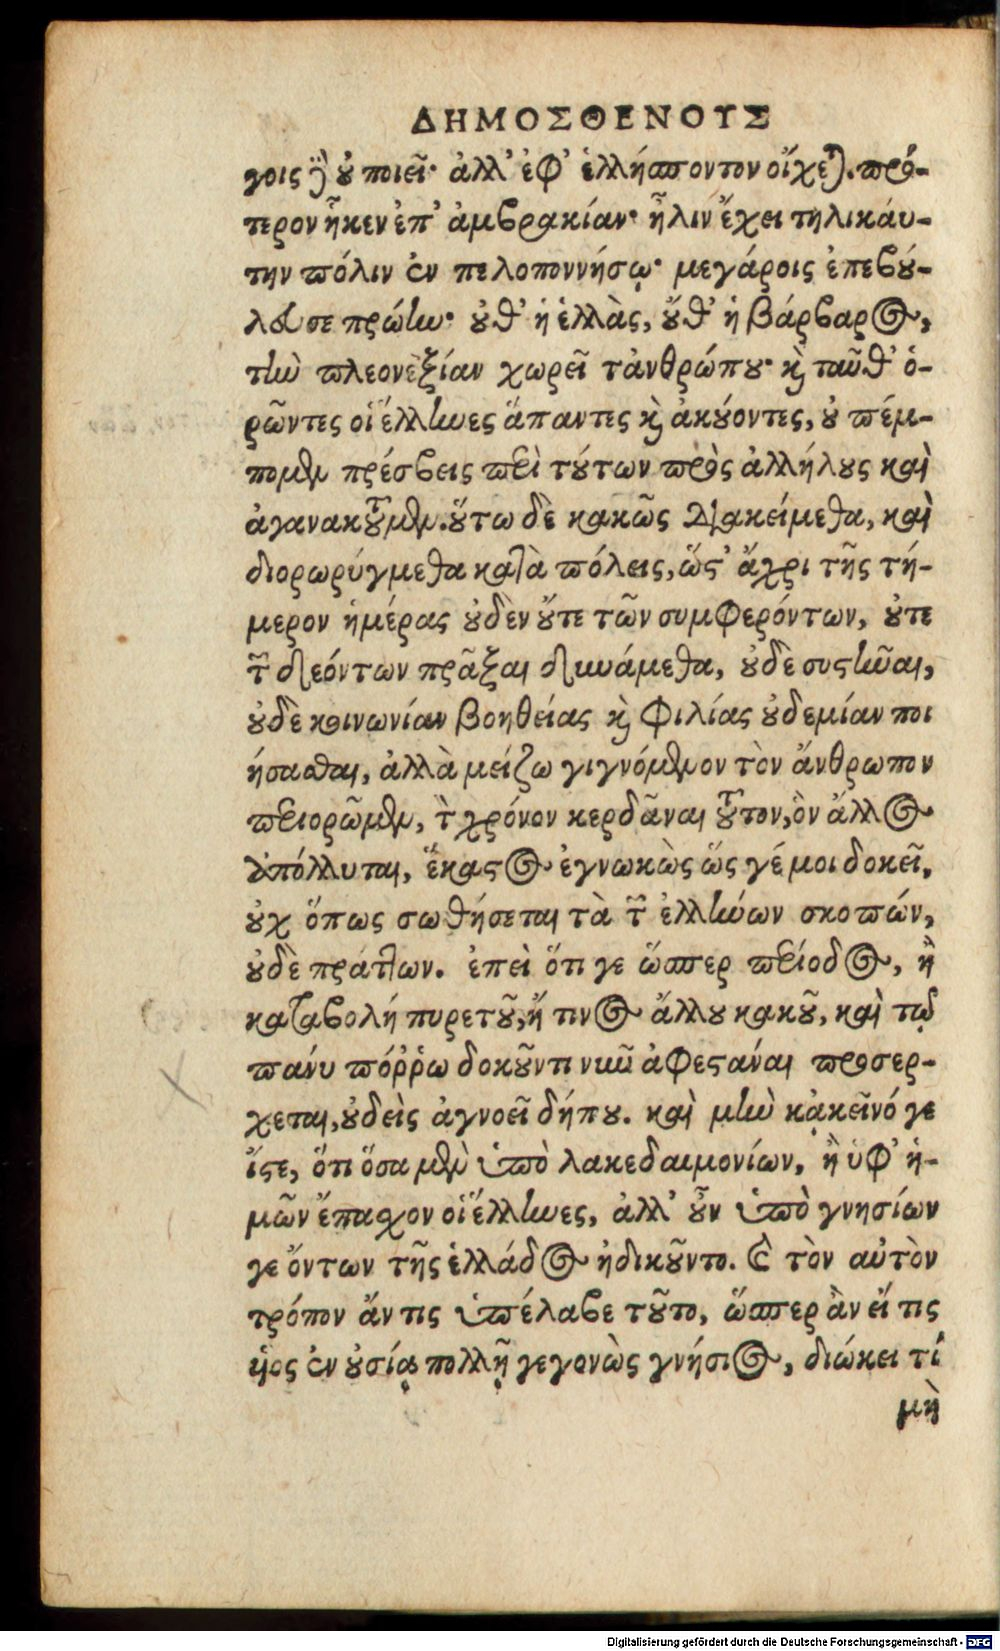 ΔΗΜΟΣΘΕΝΟΥΣ
γοις δὲ οὐ ποιεῖ· ἀλλ' ἐφ' ἑλλήσποντον οἴχεται. πρό-
τερον ἧκεν ἐπ' ἀμβρακίαν· ἦλιν ἔχει τηλικαύ-
την πόλιν ἐν πελοποννήσῳ· μεγάροις ἐπεβού-
λευσε πρώην· οὔθ' ἡ ἑλλὰς, οὔθ' ἡ βάρβαρος,
τὴν πλεονεξίαν χωρεῖ τἀνθρώπου· καὶ ταῦθ' ὁ-
ρῶντες οἱ ἕλληνες ἅπαντες καὶ ἀκούοντες, οὐ πέμ-
πομεν πρέσβεις περὶ τούτων πρὸς ἀλλήλους καὶ
ἀγανακτοῦμεν. οὕτω δὲ κακῶς διακείμεθα, καὶ
διορωρύγμεθα κατὰ πόλεις, ὥστ' ἄχρι τῆς τή-
μερον ἡμέρας οὐδὲν οὔτε τῶν συμφερόντων, οὔτε
τῶν δεόντων πρᾶξαι δυνάμεθα, οὐδὲ συστῆναι,
οὐδὲ κοινωνίαν βοηθείας καὶ φιλίας οὐδεμίαν ποι
ήσασθαι, ἀλλὰ μείζω γιγνόμενον τὸν ἄνθρωπον
περιορῶμεν, τὸν χρόνον κερδᾶναι τοῦτον, ὃν ἄλλος
ἀπόλλυται, ἕκαστος ἐγνωκὼς ὥς γέ μοι δοκεῖ,
οὐχ ὅπως σωθήσεται τὰ τῶν ἑλλήνων σκοπῶν,
οὐδὲ πράττων. ἐπεὶ ὅτι γε ὥσπερ περίοδος, ἢ
καταβολὴ πυρετοῦ, ἤ τινος ἄλλου κακοῦ, καὶ τῷ
πάνυ πόῤῥω δοκοῦντι νῦν ἀφεστάναι προσέρ-
χεται, οὐδεὶς ἀγνοεῖ δήπου. καὶ μὴν κἀκεῖνό γε
ἴστε, ὅτι ὅσα μὲν ὑπὸ λακεδαιμονίων, ἢ ὑφ' ἡ-
μῶν ἔπασχον οἱ ἕλληνες, ἀλλ' οὖν ὑπὸ γνησίων
γε ὄντων τῆς ἑλλάδος ἠδικοῦντο. καὶ τὸν αὐτὸν
τρόπον ἄν τις ὑπέλαβε τοῦτο, ὥσπερ ἂν εἴ τις
υἱος ἐν οὐσίᾳ πολλῇ γεγονὼς γνήσιος, διώκει τί
μὴ
Digitalisierung gefördert durch die Deutsche Forschungsgemeinschaft - DFG